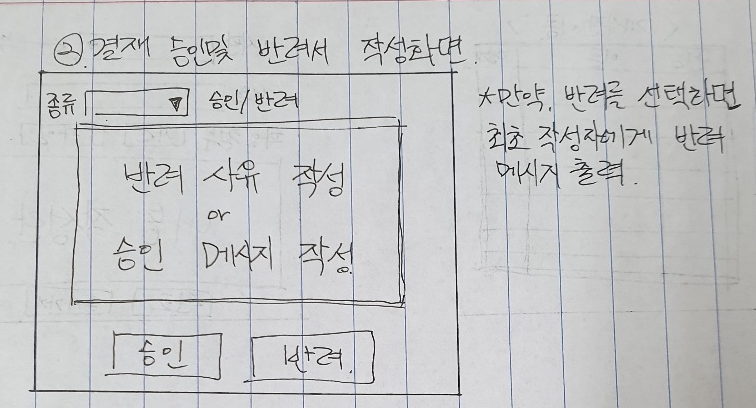 ②. 결재 승인및 반려서 작성화면.
종류 ▼ 승인/반려
반려 사유 작성
or
승인 메시지 작성.
승인 반려.
*만약, 반려를 선택하면
최초 작성자에게 반려
메시지 출력.